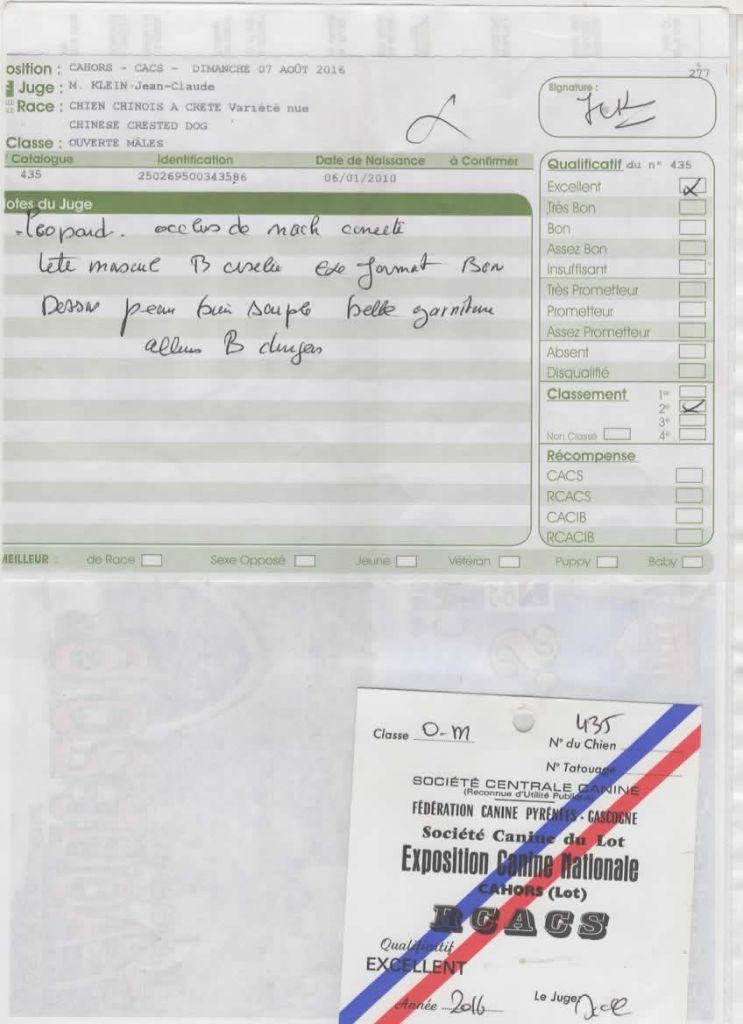 277
osition : CAHORS - CACS - DIMANCHE 07 AOÛT 2016
Juge : M. KLEIN Jean-Claude
Race : CHIEN CHINOIS A CRETE Variété nue
CHINESE CRESTED DOG
Classe : OUVERTE MÂLES
Signature :
Catalogue Identification Date de Naissance à Confirmer
435 250269500343586 06/01/2010
otes du Juge
Leopard. occlus de mach correcte
tete mascul B ciselee exe format Bon
Dessus peau bien souple belle garniture
allures B
Qualificatif du n° 435
Excellent
Très Bon
Bon
Assez Bon
Insuffisant
Très Prometteur
Prometteur
Assez Prometteur
Absent
Disqualifié
Classement 1er
2e
3e
Non Classé 4e
Récompense
CACS
RCACS
CACIB
RCACIB
MEILLEUR : de Race Sexe Opposé Jeune Vétéran Puppy Baby
Classe O-M
435
N° du Chien
N° Tatouage
SOCIÉTÉ CENTRALE CANINE
(Reconnue d'Utilité Publique)
FÉDÉRATION CANINE PYRÉNÉES - GASCOGNE
Société Canine du Lot
Exposition Canine Nationale
CAHORS (Lot)
RCACS
Qualificatif
EXCELLENT
Année 2016 Le Juge